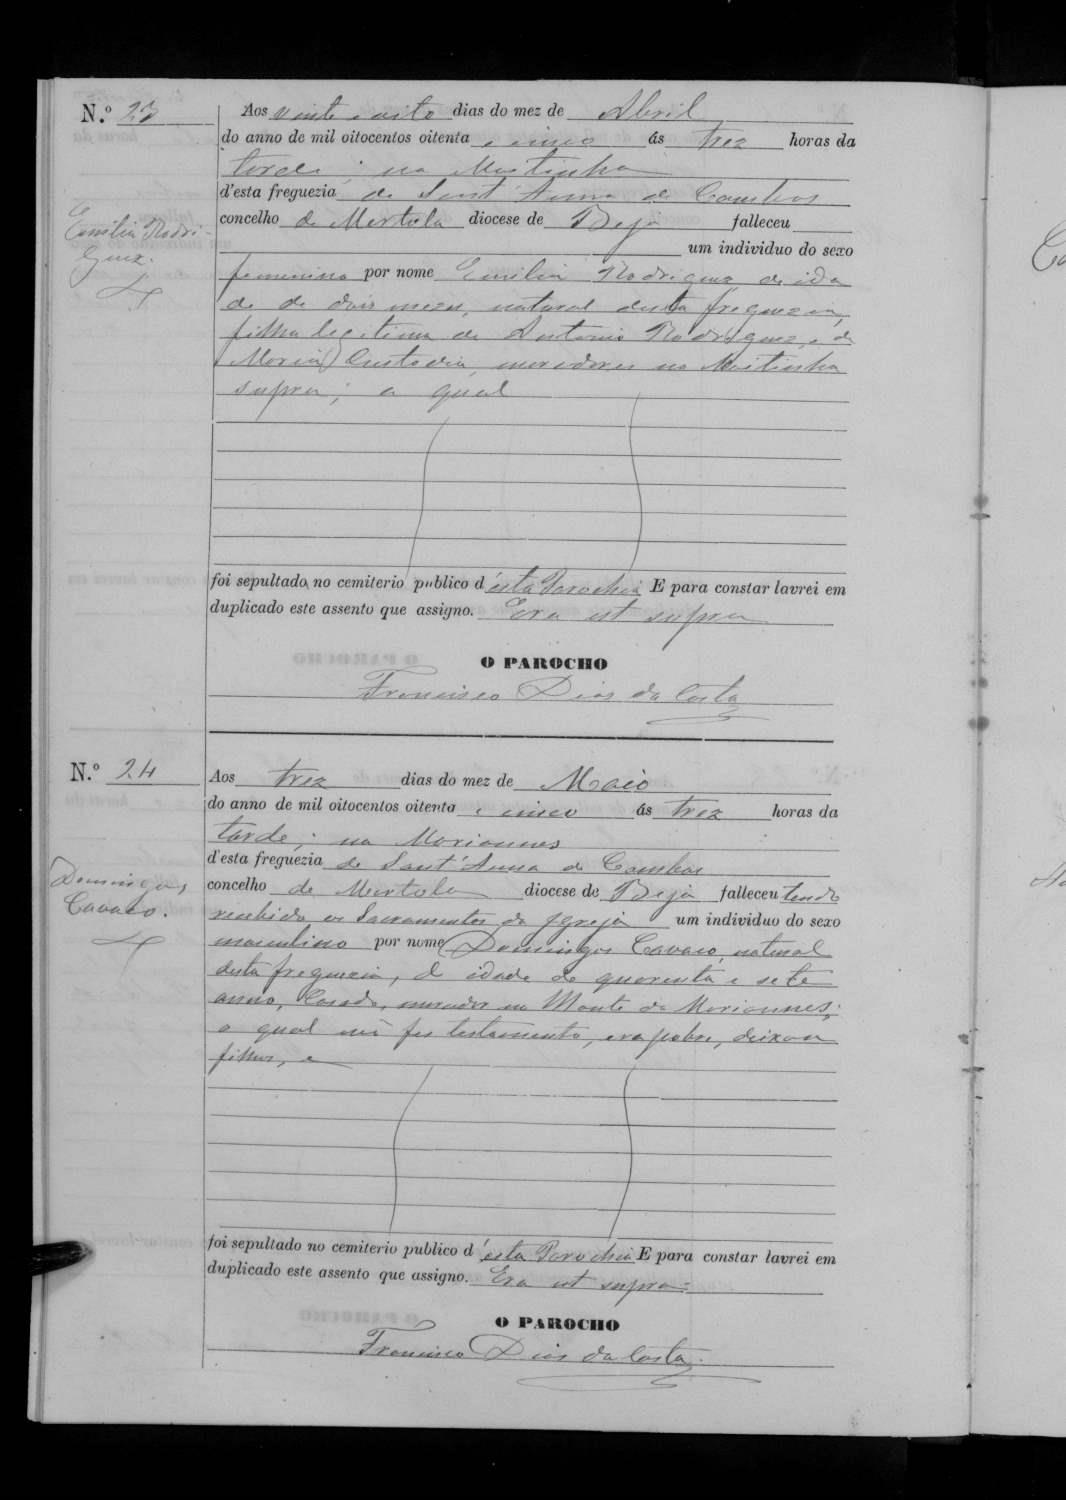 N.º 23
Aos vinte e oito dias do mez de Abril
do anno de mil oitocentos oitenta e cinco ás trez horas da
tarde; na Mostinha
d'esta freguezia de Sant'Anna de Cambas
concelho de Mertola diocese de Beja falleceu
um individuo do sexo
Emilia Rodri-
guez.
femenino por nome Emilia Rodriguez, de ida
de de dois mezes, natural desta freguezia,
filha legitima de Antonio Rodriguez, e de
Maria Custodia, moradores na Mostinha
supra; a qual
foi sepultado no cemiterio publico d'esta Parochia E para constar lavrei em
duplicado este assento que assigno. Era ut supra
O PAROCHO
Francisco Dias da Costa
N.º 24
Aos trez dias do mez de Maio
do anno de mil oitocentos oitenta e cinco ás trez horas da
tarde; na Moriannes
d'esta freguezia de Sant'Anna de Cambas
Domingos
Cavaco.
concelho de Mertola diocese de Beja falleceu tendo
recebido os Sacramentos da Igreja um individuo do sexo
masculino por nome Domingos Cavaco, natural
desta freguezia, d idade de quarenta e sete
annos, Casado, morador no Monte da Moriannes;
o qual não fes testamento, era pobre, deixou
filhos, e
foi sepultado no cemiterio publico d'esta Parochia E para constar lavrei em
duplicado este assento que assigno. Era ut supra=
O PAROCHO
Francisco Dias da Costa.